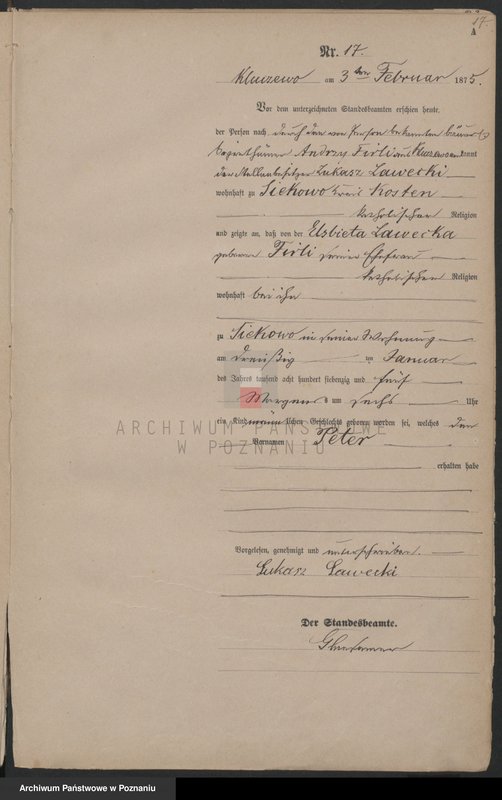 17.
A
Nr. 17.
Kluczewo am 3ten Februar 1875.
Vor dem unterzeichneten Standesbeamten erschien heute,
der Person nach durch den von Person bekannten
Andrzy Firli aus Kluczewo kannt
der Lukasz Lawecki
wohnhaft zu Siekowo Kreis Kosten
katholischer Religion
und zeigte an, daß von der Elzbieta Lawecka
geborenen Firli seiner Ehefrau
katholischer Religion
wohnhaft bei ihm
zu Siekowo in seiner Wohnung
am dreißig ten Januar
des Jahres tausend acht hundert siebenzig und fünf
Morgens um sechs Uhr
ein Kind männlichen Geschlechts geboren worden sei, welches den
Vornamen Peter
erhalten habe
Vorgelesen, genehmigt und unterschrieben.
Lukasz Lawecki
Der Standesbeamte.
ARCHIWUM PAŃSTWOWE
W POZNANIU
Archiwum Państwowe w Poznaniu